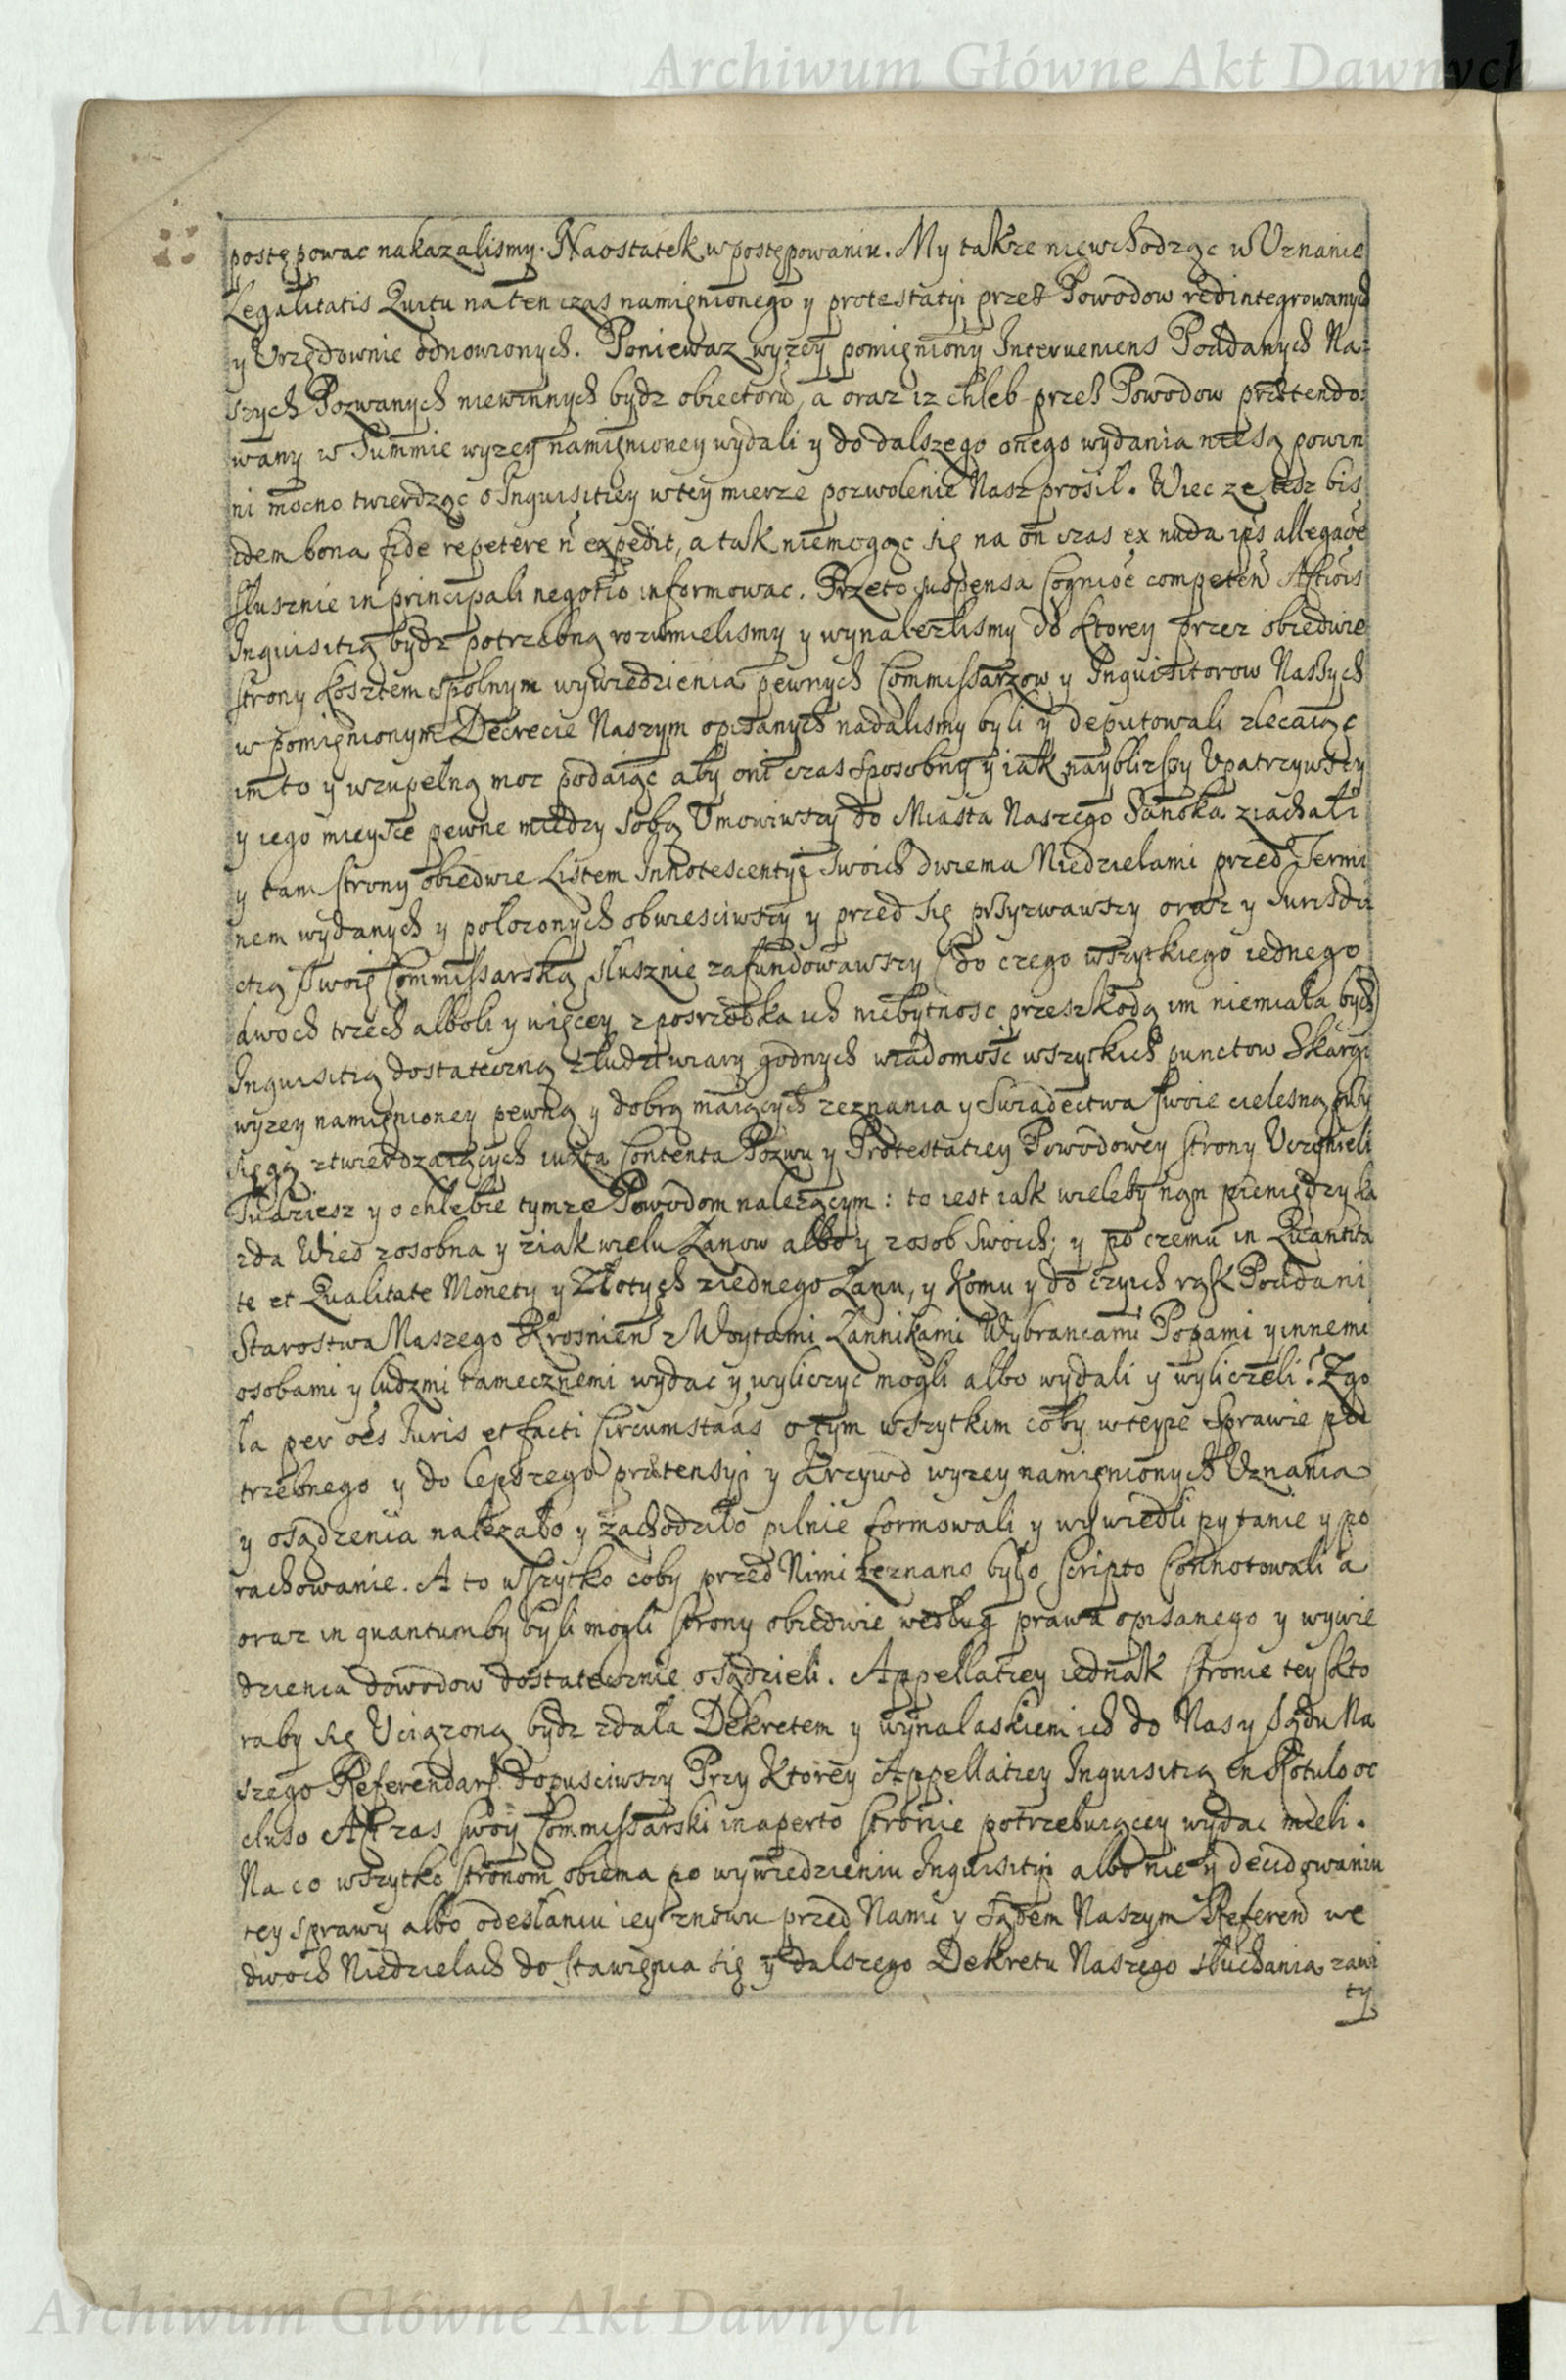 Archiwum Główne Akt Dawnych
postępowac nakazalismy. Naostatek w postępowaniu. My takze niewchodząc w Uznanie
Legalitatis Quitu na ten czas namięnionego y protestatyi przez Powodow redintegrowanych
y Urzędownie odnowionych. Poniewaz wyzey pomięniony Interueniens Poddanych Na=
szych Pozwanych niewinnych bydz obiectorũ, a oraz iz chleb przez Powodow prætendo:
wany w Summie wyzey namięnioney wydali y do dalszego onego wydania niesą powin
ni mocno twierdząc o Inquisitiey w tey mierze pozwolenie Nasz prosil. Wiec ze tesz bis
idem bona fide repetere ñ expedit, a tak niemogąc się na on czas ex nuda ips allegaõe
slusznie in principali negotio informowac. Przeto suspensa Cognioe competen Actiois
Inquisitią bydz potrzebną rozumielismy y wynalezlismy do ktorey przez obiedwie
strony kosztem spolnym wywiedzienia pewnych Commissarzow y Inquisitorow Naszych
w pomięnionym Decrecie Naszym opisanych nadalismy byli y deputowali zlecaiąc
im to y wzupełną moc podaiąc aby oni czas sposobny y iak nayblizszy Upatrzywszy
y iego mieysce pewne miedzy sobą Umowiwszy do Miasta Naszego Sanoka ziachali
y tam strony obiedwie Listem Innotescentyi swoich dwiema Niedzielami przed Termi
nem wydanych y polozonych obwiesciwszy y przed się przyzwawszy oraz y Jurisdi
ctią swoię Commissarską slusznie zafundowawszy (do czego wszytkiego iednego
dwoch trzech alboli y więcey z posrzodka ich niebytnosc przeszkodą im niemiała bydz)
Inquisitią dostateczną z ludzi wiary godnych wiadomosc wszytkich punctow Skargi
wyzey namięnioney pewną y dobrą maiących zeznania y Swiadectwa swoie cielesną przy
sięgą ztwierdzaiących iuxta Contenta Pozwu y Protestatiey Powodowey strony Uczynieli
Tudziesz y o chlebie tymze Powodom nalezącym: to iest iak wieleby nań pieniędzy ka
zda Wies zosobna y ziak wielu Łanow albo y zosob swoich; y po czemu in Quantita
te et Qualitate Monety y Złotych ziednego Łanu, y komu y do czyich rąk Poddani
Starostwa Naszego Krosnien z Woytami Łannikami Wybrancami Popami y innemi
osobami y ludzmi tamecznemi wydac y wyliczyc mogli albo wydali y wyliczeli? Zgo
ła per oẽs Iuris et facti Circumstãas o tym wszytkim coby w teyze Sprawie po
trzebnego y do lepszego prætensyi y Krzywd wyzey namięnionych Uznania
y osądzenia nalezało y zachodziło pilnie formowali y wywiedli pytanie y po
rachowanie. A to wszytko coby przed Nimi zeznano było scripto Connotowali a
oraz in quantumby byli mogli strony obiedwie wedlug prawa opisanego y wywie
dzienia dowodow dostatecznie osądzieli. Appellatiey iednak stronie tey kto
raby się Uciązoną bydz zdała Dekretem y wynalaskiem ich do Nas y Sądu Na
szego Referendars. dopusciwszy Przy ktorey Appellatiey Inquisitią in Rotulo oc
cluso Akt zas swoy Commissarski in aperto stronie potrzebuiącey wydac mieli.
Na co wszytko stronom obiema po wywiedzieniu Inquisityi albo nie y decidowaniu
tey sprawy albo odesłaniu iey znowu przed Nami y Sądem Naszym Referend we
dwoch Niedzielach do stawięnia się y dalszego Dekretu Naszego słuchania zawi
ty
Archiwum Główne Akt Dawnych